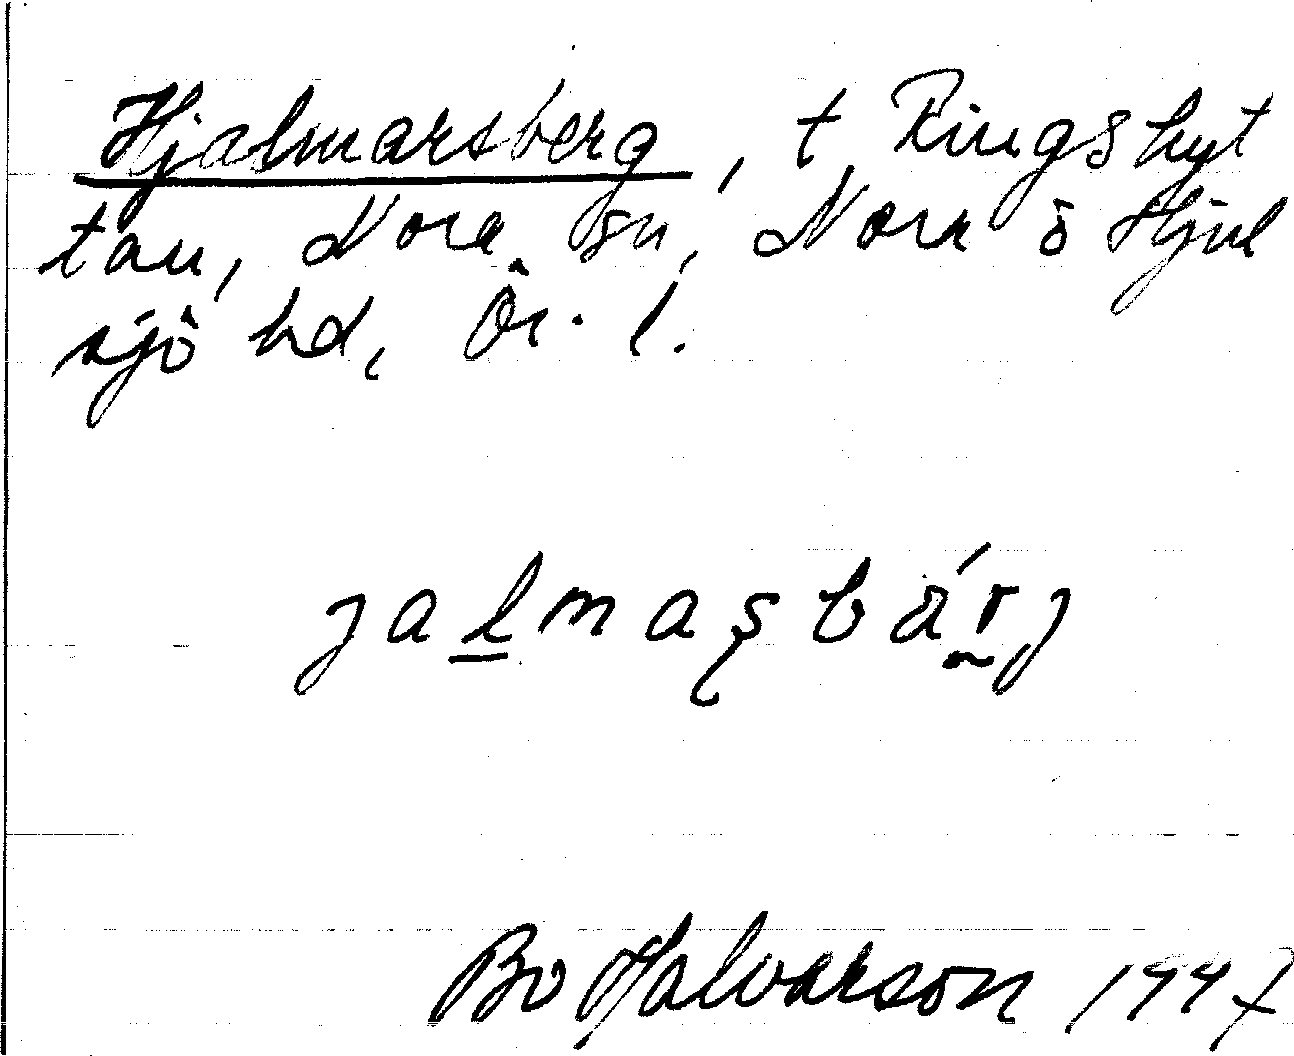 Hjalmarsberg, t. Ringshyt
tan, Nora sn, Nora o Hjul
sjö hd, Ör. l.
jalmaʂbä́rj
Bo Halvarson 1947